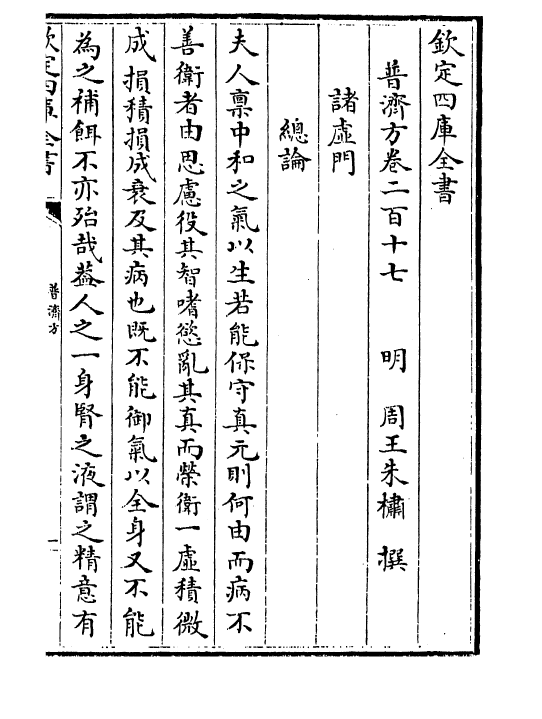 欽定四庫全書
普濟方卷二百十七　明　周王朱橚　撰
諸虛門
總論
夫人禀中和之氣以生若能保守真元則何由而病不
善衛者由思慮役其智嗜慾亂其真而榮衛一虛積微
成損積損成衰及其病也既不能御氣以全身又不能
為之補餌不亦殆哉葢人之一身腎之液謂之精意有
欽定四庫全書
普濟方
一